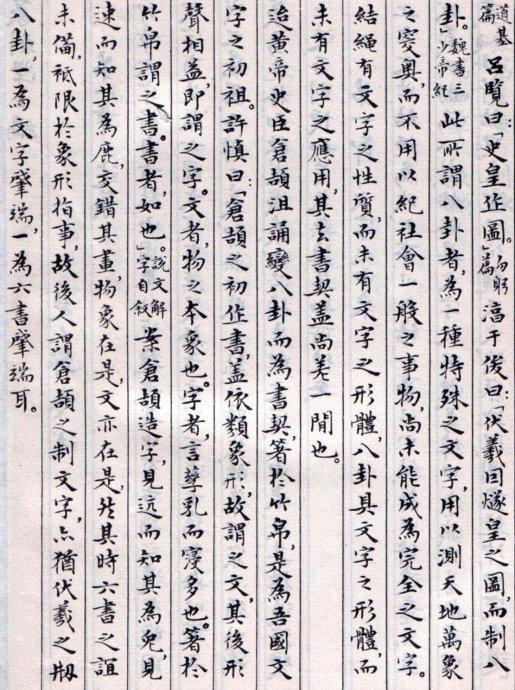 道基篇 呂覽曰：「史皇作圖。」勿躬篇 淳于俊曰：「伏羲因燧皇之圖，而制八
卦。」魏書三少帝紀 此所謂八卦者，為一種特殊之文字，用以測天地萬象
之窔奧，而不用以紀社會一般之事物，尚未能成為完全之文字。
結繩有文字之性質，而未有文字之形體，八卦具文字之形體，而
未有文字之應用，其去書契蓋尚差一閒也。
迨黃帝史臣倉頡沮誦變八卦而為書契，箸於竹帛，是為吾國文
字之初祖。許慎曰：「倉頡之初作書，蓋依類象形，故謂之文，其後形
聲相益，即謂之字。文者，物之本象也。字者，言孳乳而寖多也。箸於
竹帛謂之書。書者，如也。」說文解字自敘 案倉頡造字，見迒而知其為兔，見
速而知其為鹿，交錯其畫，物象在是，文亦在是，然其時六書之誼
未備，祗限於象形指事，故後人謂倉頡之制文字，亦猶伏羲之刱
八卦，一為文字肇端，一為六書肇端耳。